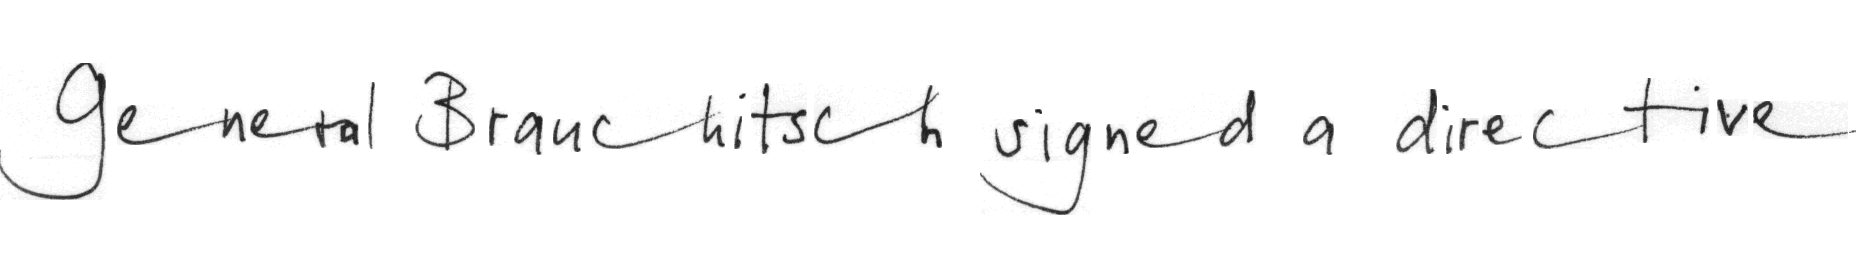 General Brauchitsch signed a directive